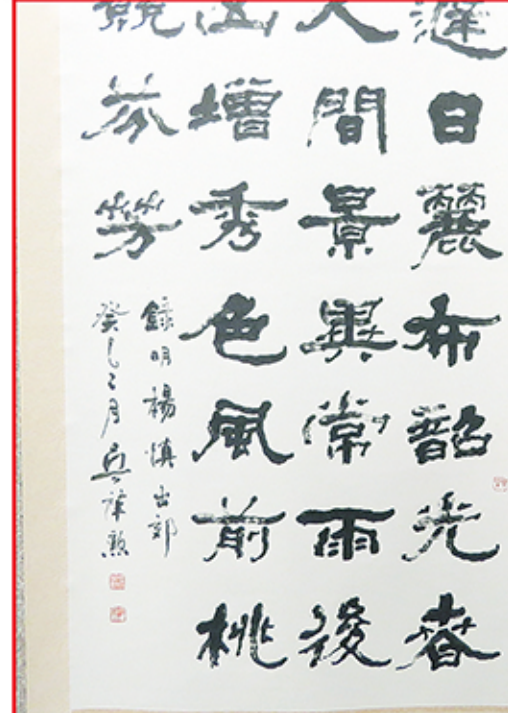 日麗布韶光春
人間景與常雨後
山增秀色風前桃
競芬芳
錄明楊慎出郊
癸巳二月吳